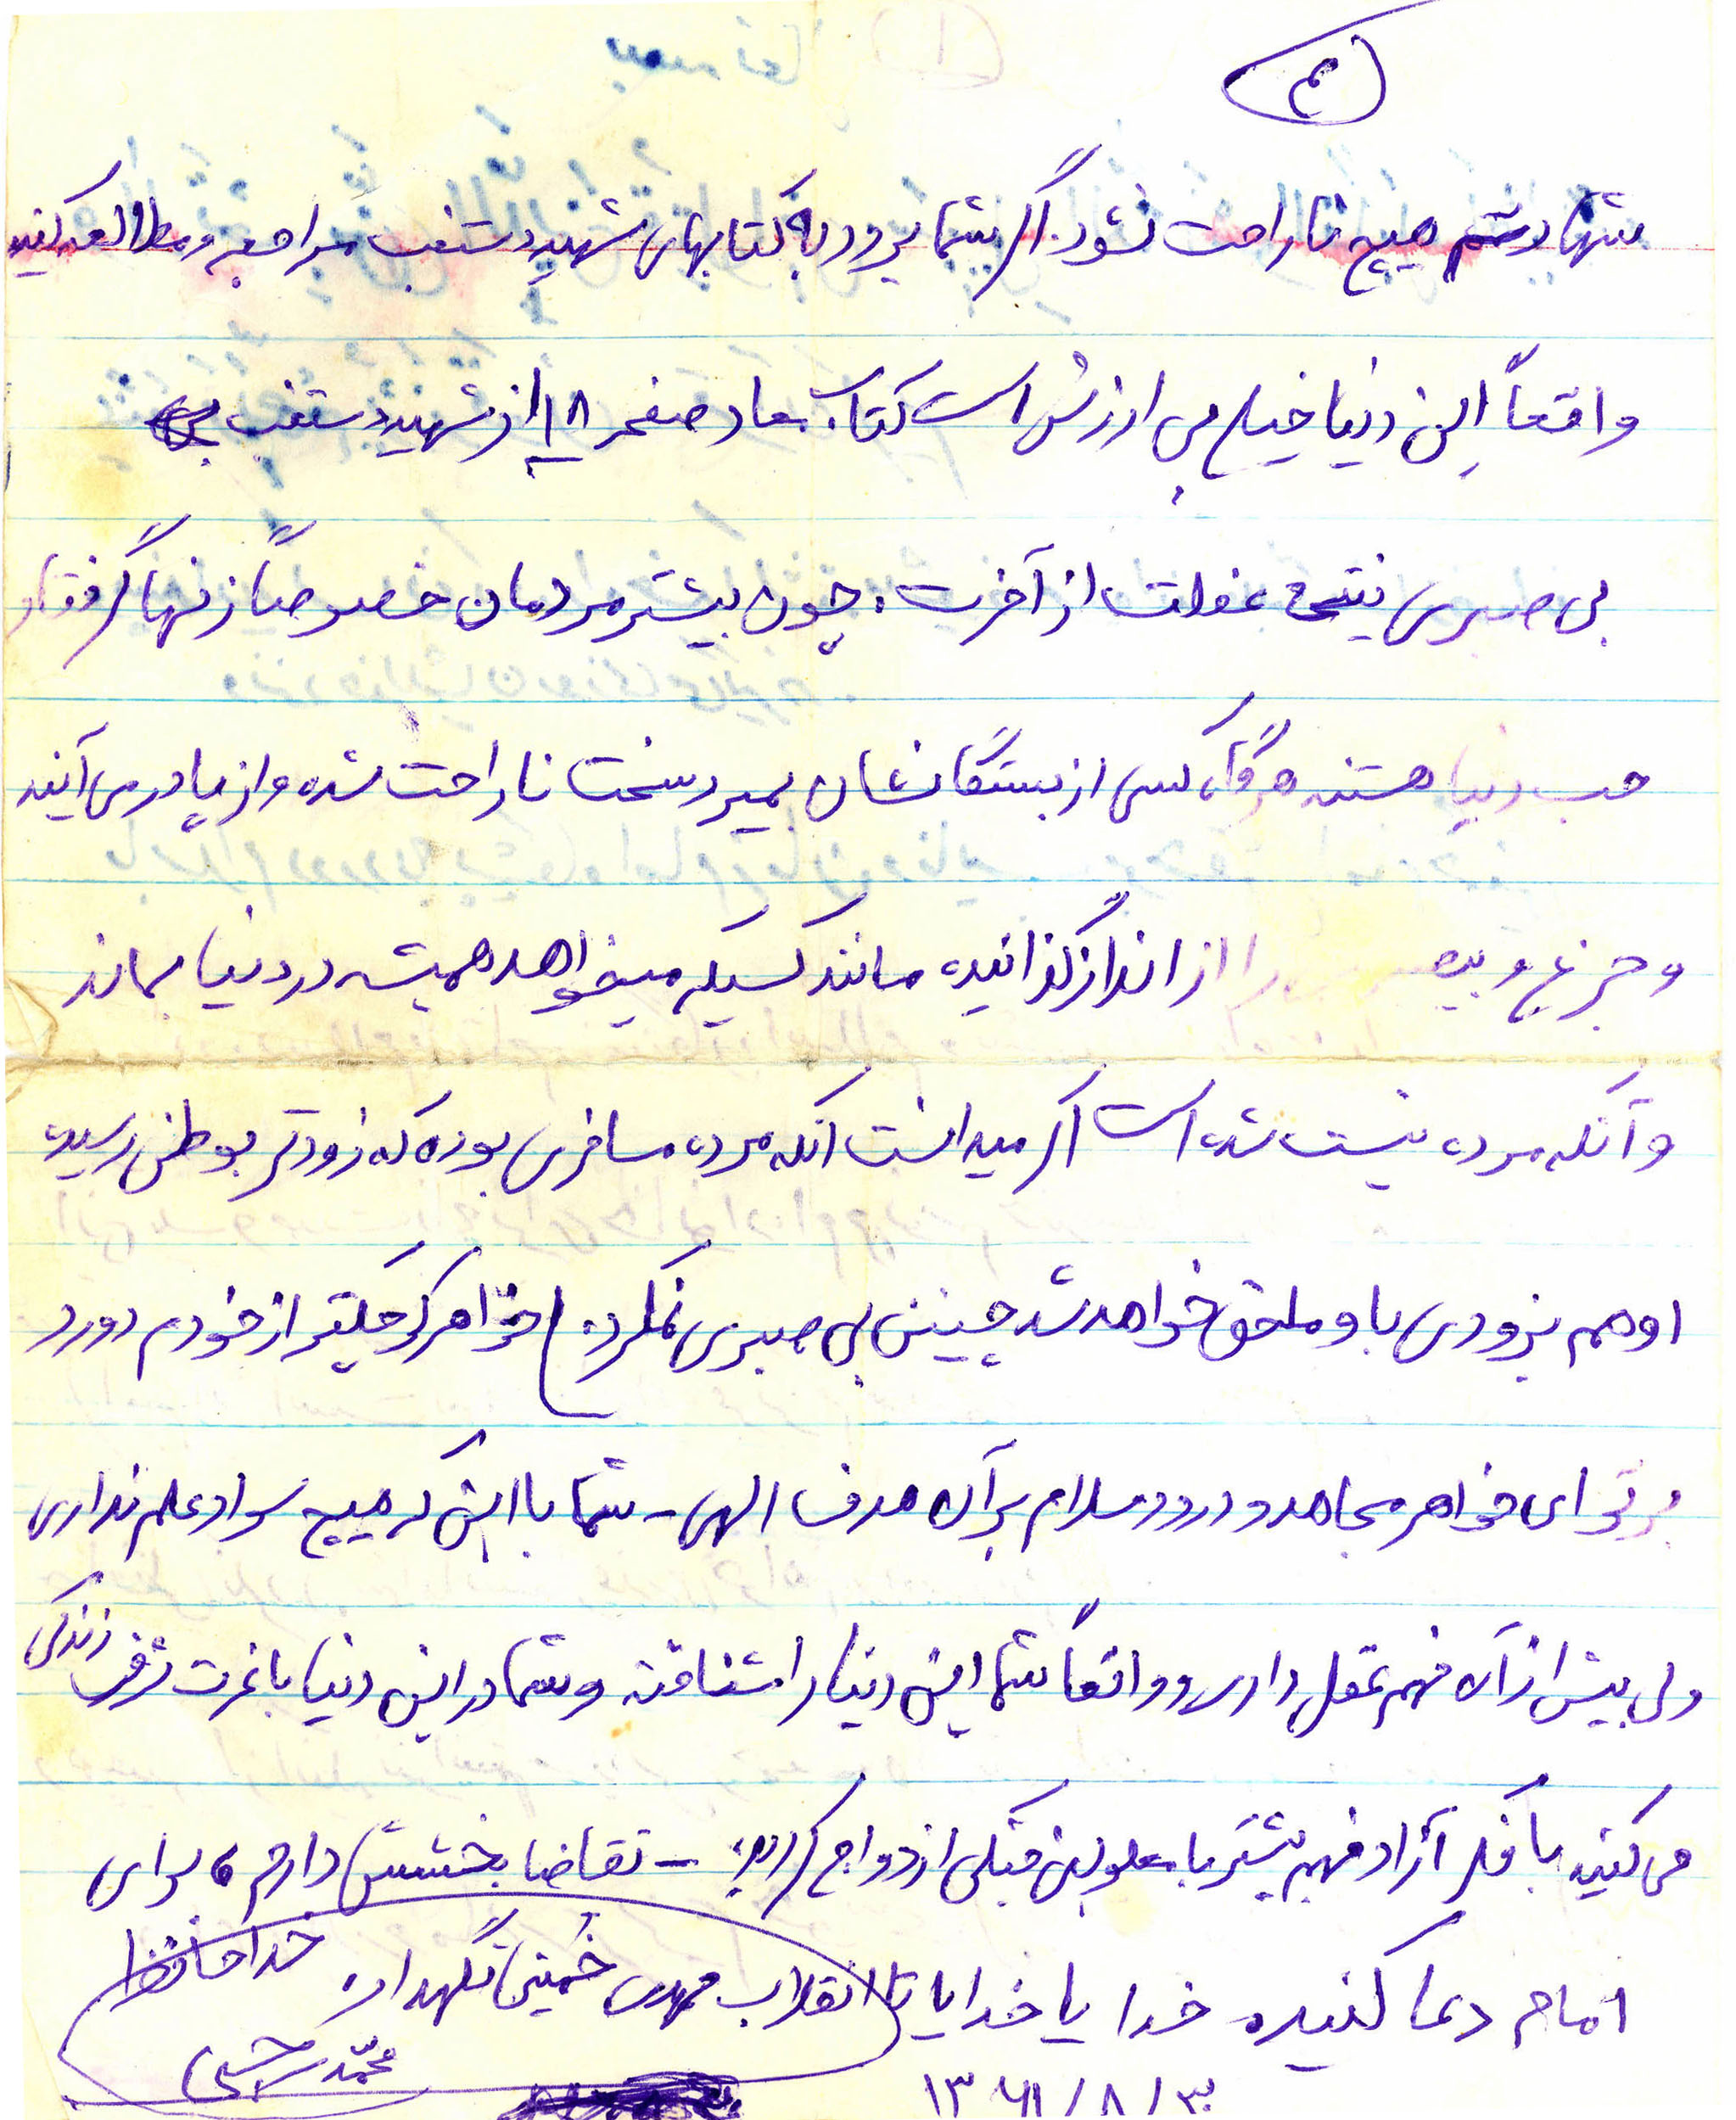 ۳
شهادتم هیچ ناراحت نشود. اگر شما برود به کتابهای شهید دستغیب مراجعه و مطالعه کنید
واقعاً این دنیا خیلی بی ارزش است کتاب معاد صفحه ۱۸ از شهید دستغیب
بی صبری نتیجه غفلت از آخرت. چون بیشتر مردمان خصوصاً زنها گرفتار
حب دنیا هستند هرگاه کسی از بستگانشان بمیرد سخت ناراحت شده و از پا در می آیند
و جزع و را از اندازگذانیده مانند کسیکه میخواهد همیشه در دنیا بماند
و آنکه مرده نیست شده است اگر میدانست آنکه مرده مسافری بوده که زودتر بوطنش رسیده
او هم بزودی باو ملحق خواهد شد چنین بی صبری نمکرد. خواهر کوچکتر از خودم درود
بر تو ای خواهر مجاهد و درود و سلام بر آن هدف الهی - شما با این که هیچ سواد علم نداری
ولی بیش از آن فهم عقل داری و واقعاً شما این دنیا را شناخته و شما در این دنیا با غرت شرف زندگی
می کنید با فکر آزاد فهم بیشتر با معلولین جنگی ازدواج کردید - تقاضا بخشش دارم، برای
امام دعا کنید. خدا یا خدایا تا انقلاب مهدی خمینی نگهدار. خداحافظ
محمد
۱۳۶۱/۸/۳۰